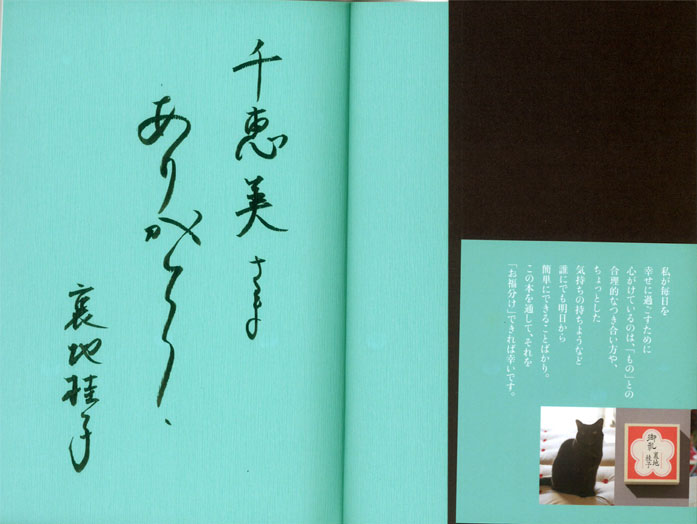 千恵美さま
ありがとう、
裏地桂子
私が毎日を
幸せに過ごすために
心がけているのは、「もの」との
合理的なつき合い方や、
ちょっとした
気持ちの持ちようなど
誰にでも明日から
簡単にできることばかり。
この本を通して、それを
「お福分け」できれば幸いです。
御礼
裏地
桂子